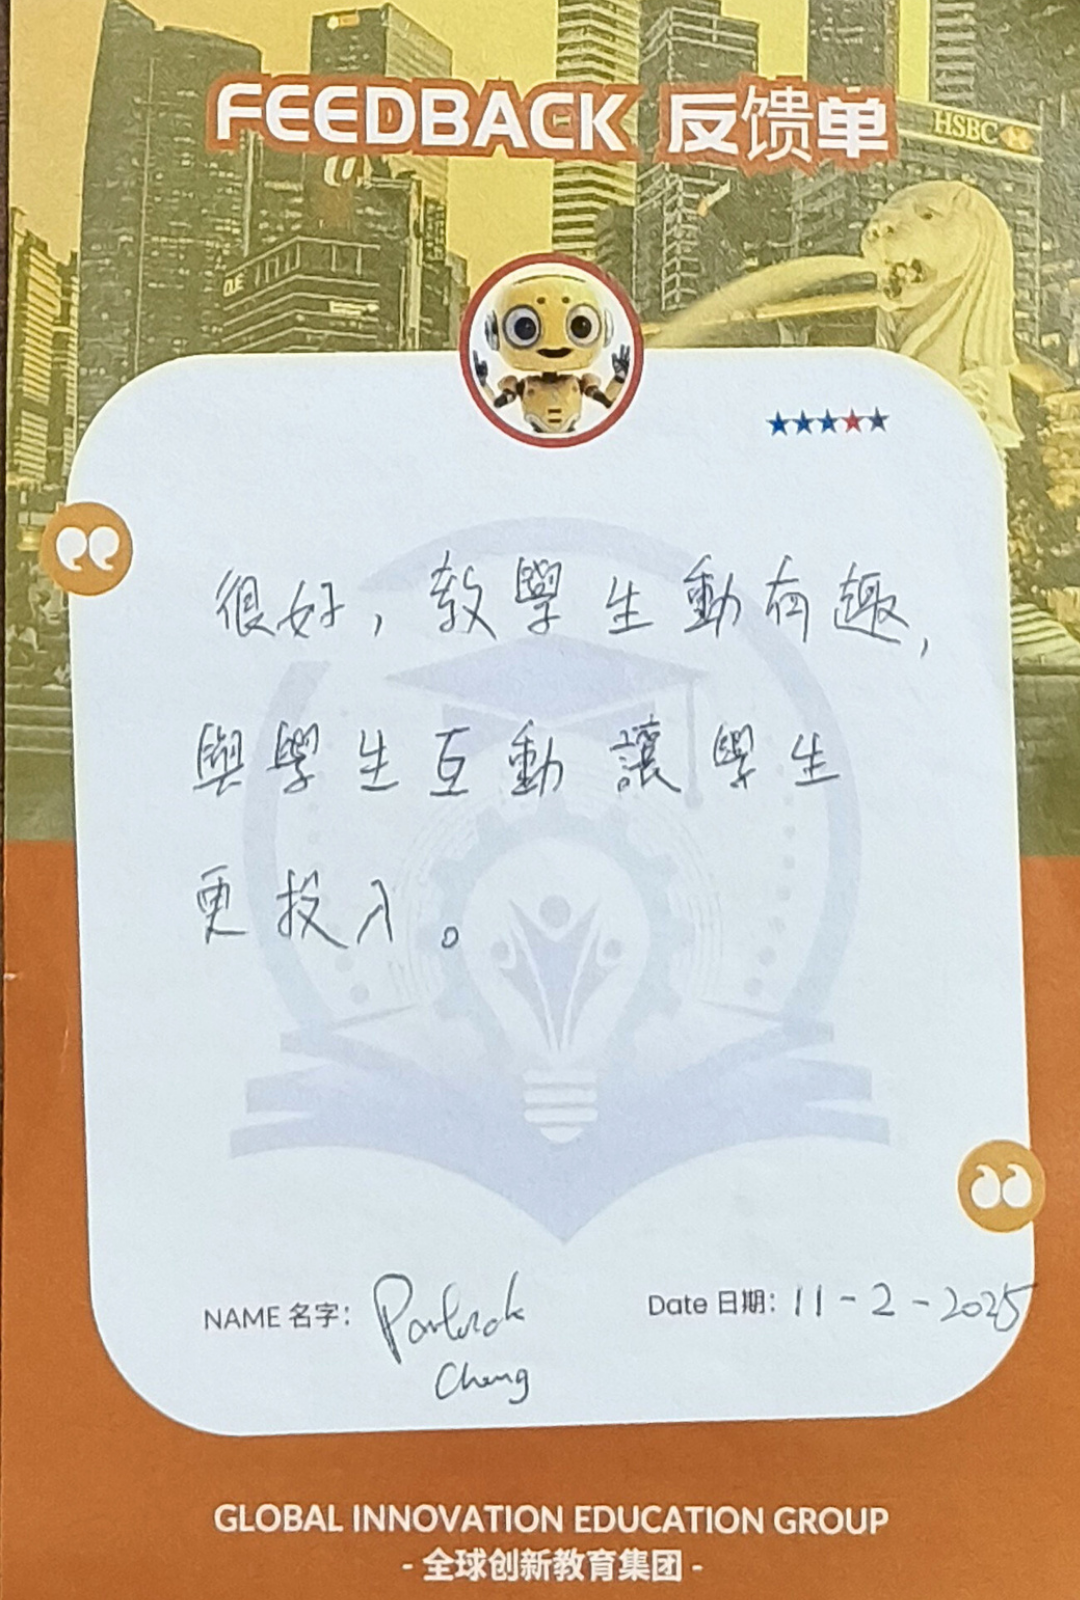 FEEDBACK 反馈单
HSBC
很好，教學生動有趣，
與學生互動 讓學生
更投入。
NAME 名字：
Cheng
Date 日期：11-2-2025
GLOBAL INNOVATION EDUCATION GROUP
- 全球创新教育集团 -